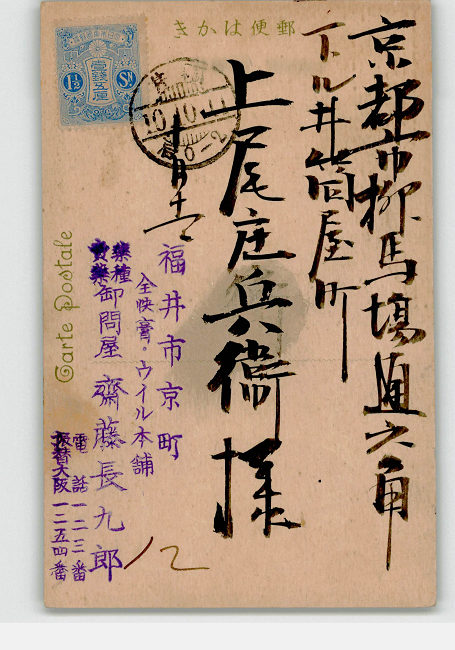 きかは便郵
京都市柳馬場通六角
下ル井筒屋町
上尾庄兵衛様
十月十一
福井市京町
全快膏・ウイル本舗
薬種
売薬
卸問屋 齋藤長九郎
電話一二三番
振替大阪一二五四番
Carte Postale
1½ Sn
10.10.11
12